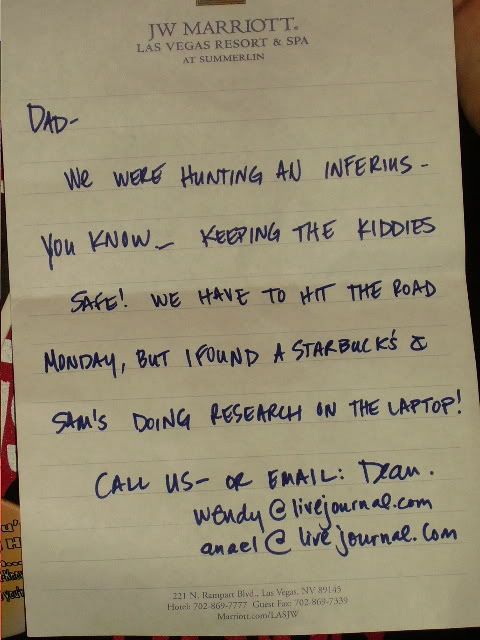 JW MARRIOTT®
LAS VEGAS RESORT & SPA
AT SUMMERLIN
DAD-
We WERE HUNTING AN INFERIUS -
YOU KNOW - KEEPING THE KIDDIES
SAFE! WE HAVE TO HIT THE ROAD
MONDAY, BUT I FOUND A STARBUCK'S &
SAM'S DOING RESEARCH ON THE LAPTOP!
CALL US - OR EMAIL: Dean.
wendy@livejournal.com
anael@livejournal.com
221 N. Rampart Blvd., Las Vegas, NV 89145
Hotel: 702-869-7777 Guest Fax: 702-869-7339
Marriott.com/LASJW